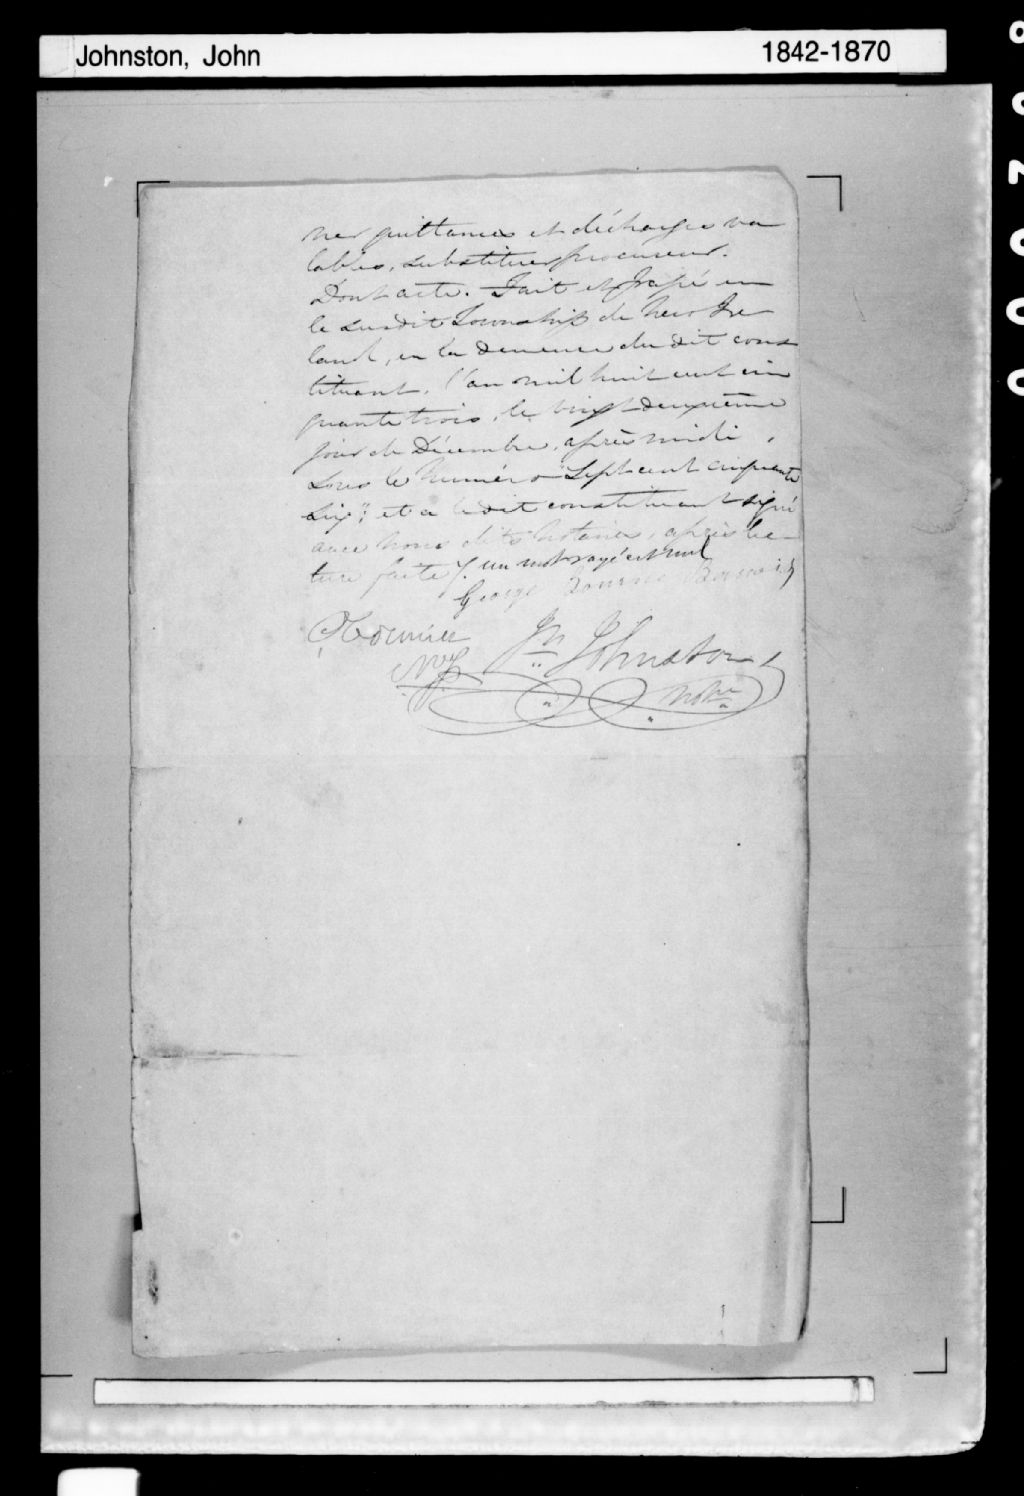 Johnston, John 1842-1870
ner quittances et décharges va
lables, substituer procureur.
Dont acte. Fait et passé en
le susdit Township de New Ire
land, en la demeure du dit cons
tituant, l'an mil huit cent cin
quante trois, le vingt deuxième
jour de Décembre, après midi,
sous le Numéro "Sept cent cinquante
six"; et a le dit constituant signé
avec nous dits Notaires, après lec-
ture faite / un mot rayé est nul
George Bourne
Jn Johnston
Notre